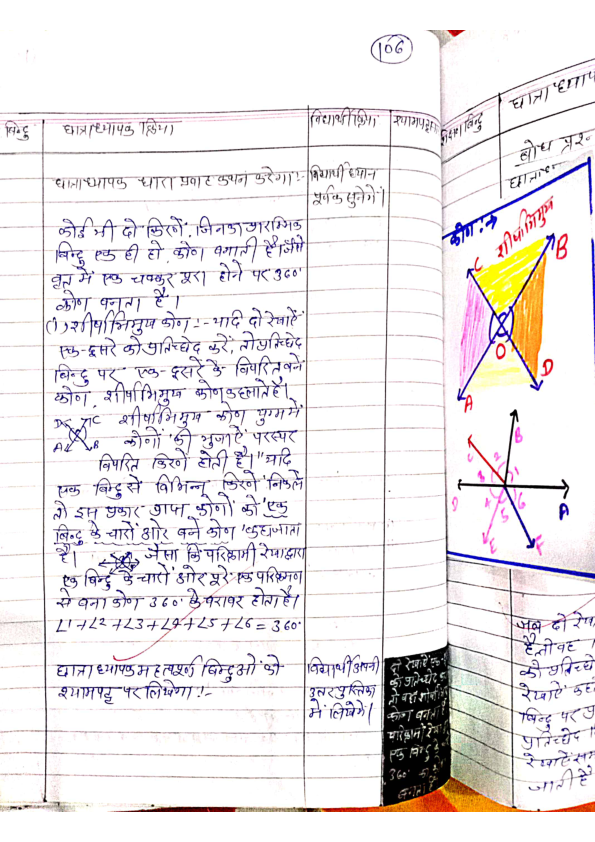 106
बिन्दु
छात्राध्यापक क्रिया
विद्यार्थी क्रिया
श्यामपट्ट
छात्राध्यापक धारा प्रवाह कथन करेगा:-
विद्यार्थी ध्यान
पूर्वक सुनेगें।
कोई भी दो किरणें, जिनका प्रारम्भिक
बिन्दु एक ही हो कोण बनाती है। जैसे
वृत में एक चक्कर पूरा होने पर 360°
कोण बनता है।
(1) शीर्षाभिमुख कोण:- यदि दो रेखाएँ
एक-दूसरे को प्रतिच्छेद करें, तो प्रतिच्छेद
बिन्दु पर एक-दूसरे के विपरित बने
कोण, शीर्षाभिमुख कोण कहलाते है।
D C शीर्षाभिमुख कोण युग्म में
A B कोणों की भुजाएँ परस्पर
विपरित किरणें होती है। "यदि
एक बिन्दु से विभिन्न किरणें निकले
तो इस प्रकार प्राप्त कोणों को 'एक
बिन्दु के चारों ओर बने कोण' कहा जाता
है। जैसा कि परिक्रामी रेखा द्वारा
एक बिन्दु के चारों ओर पूरे एक परिक्रमण
से बना कोण 360° के बराबर होता है।
∠1+∠2+∠3+∠4+∠5+∠6=360°
छात्राध्यापक महत्वपूर्ण बिन्दुओं को
श्यामपट्ट पर लिखेगा:-
विद्यार्थी अपनी
उत्तर पुस्तिका
में लिखेगें।
दो रेखाएँ एक
को प्रतिच्छेद
कोण बनता
एक बिन्दु
360°
बिन्दु
छात्राध्याप
बोध प्रश्न
कोण:→
शीर्षाभिमुख
C
B
O
A
D
B
C
2
3
1
D
4
5
6
A
E
F
जब दो रेखा
है, तो वह
को प्रतिच्छे
रेखाएँ कह
बिन्दु पर
प्रतिच्छेद
रेखाएँ
जाती है